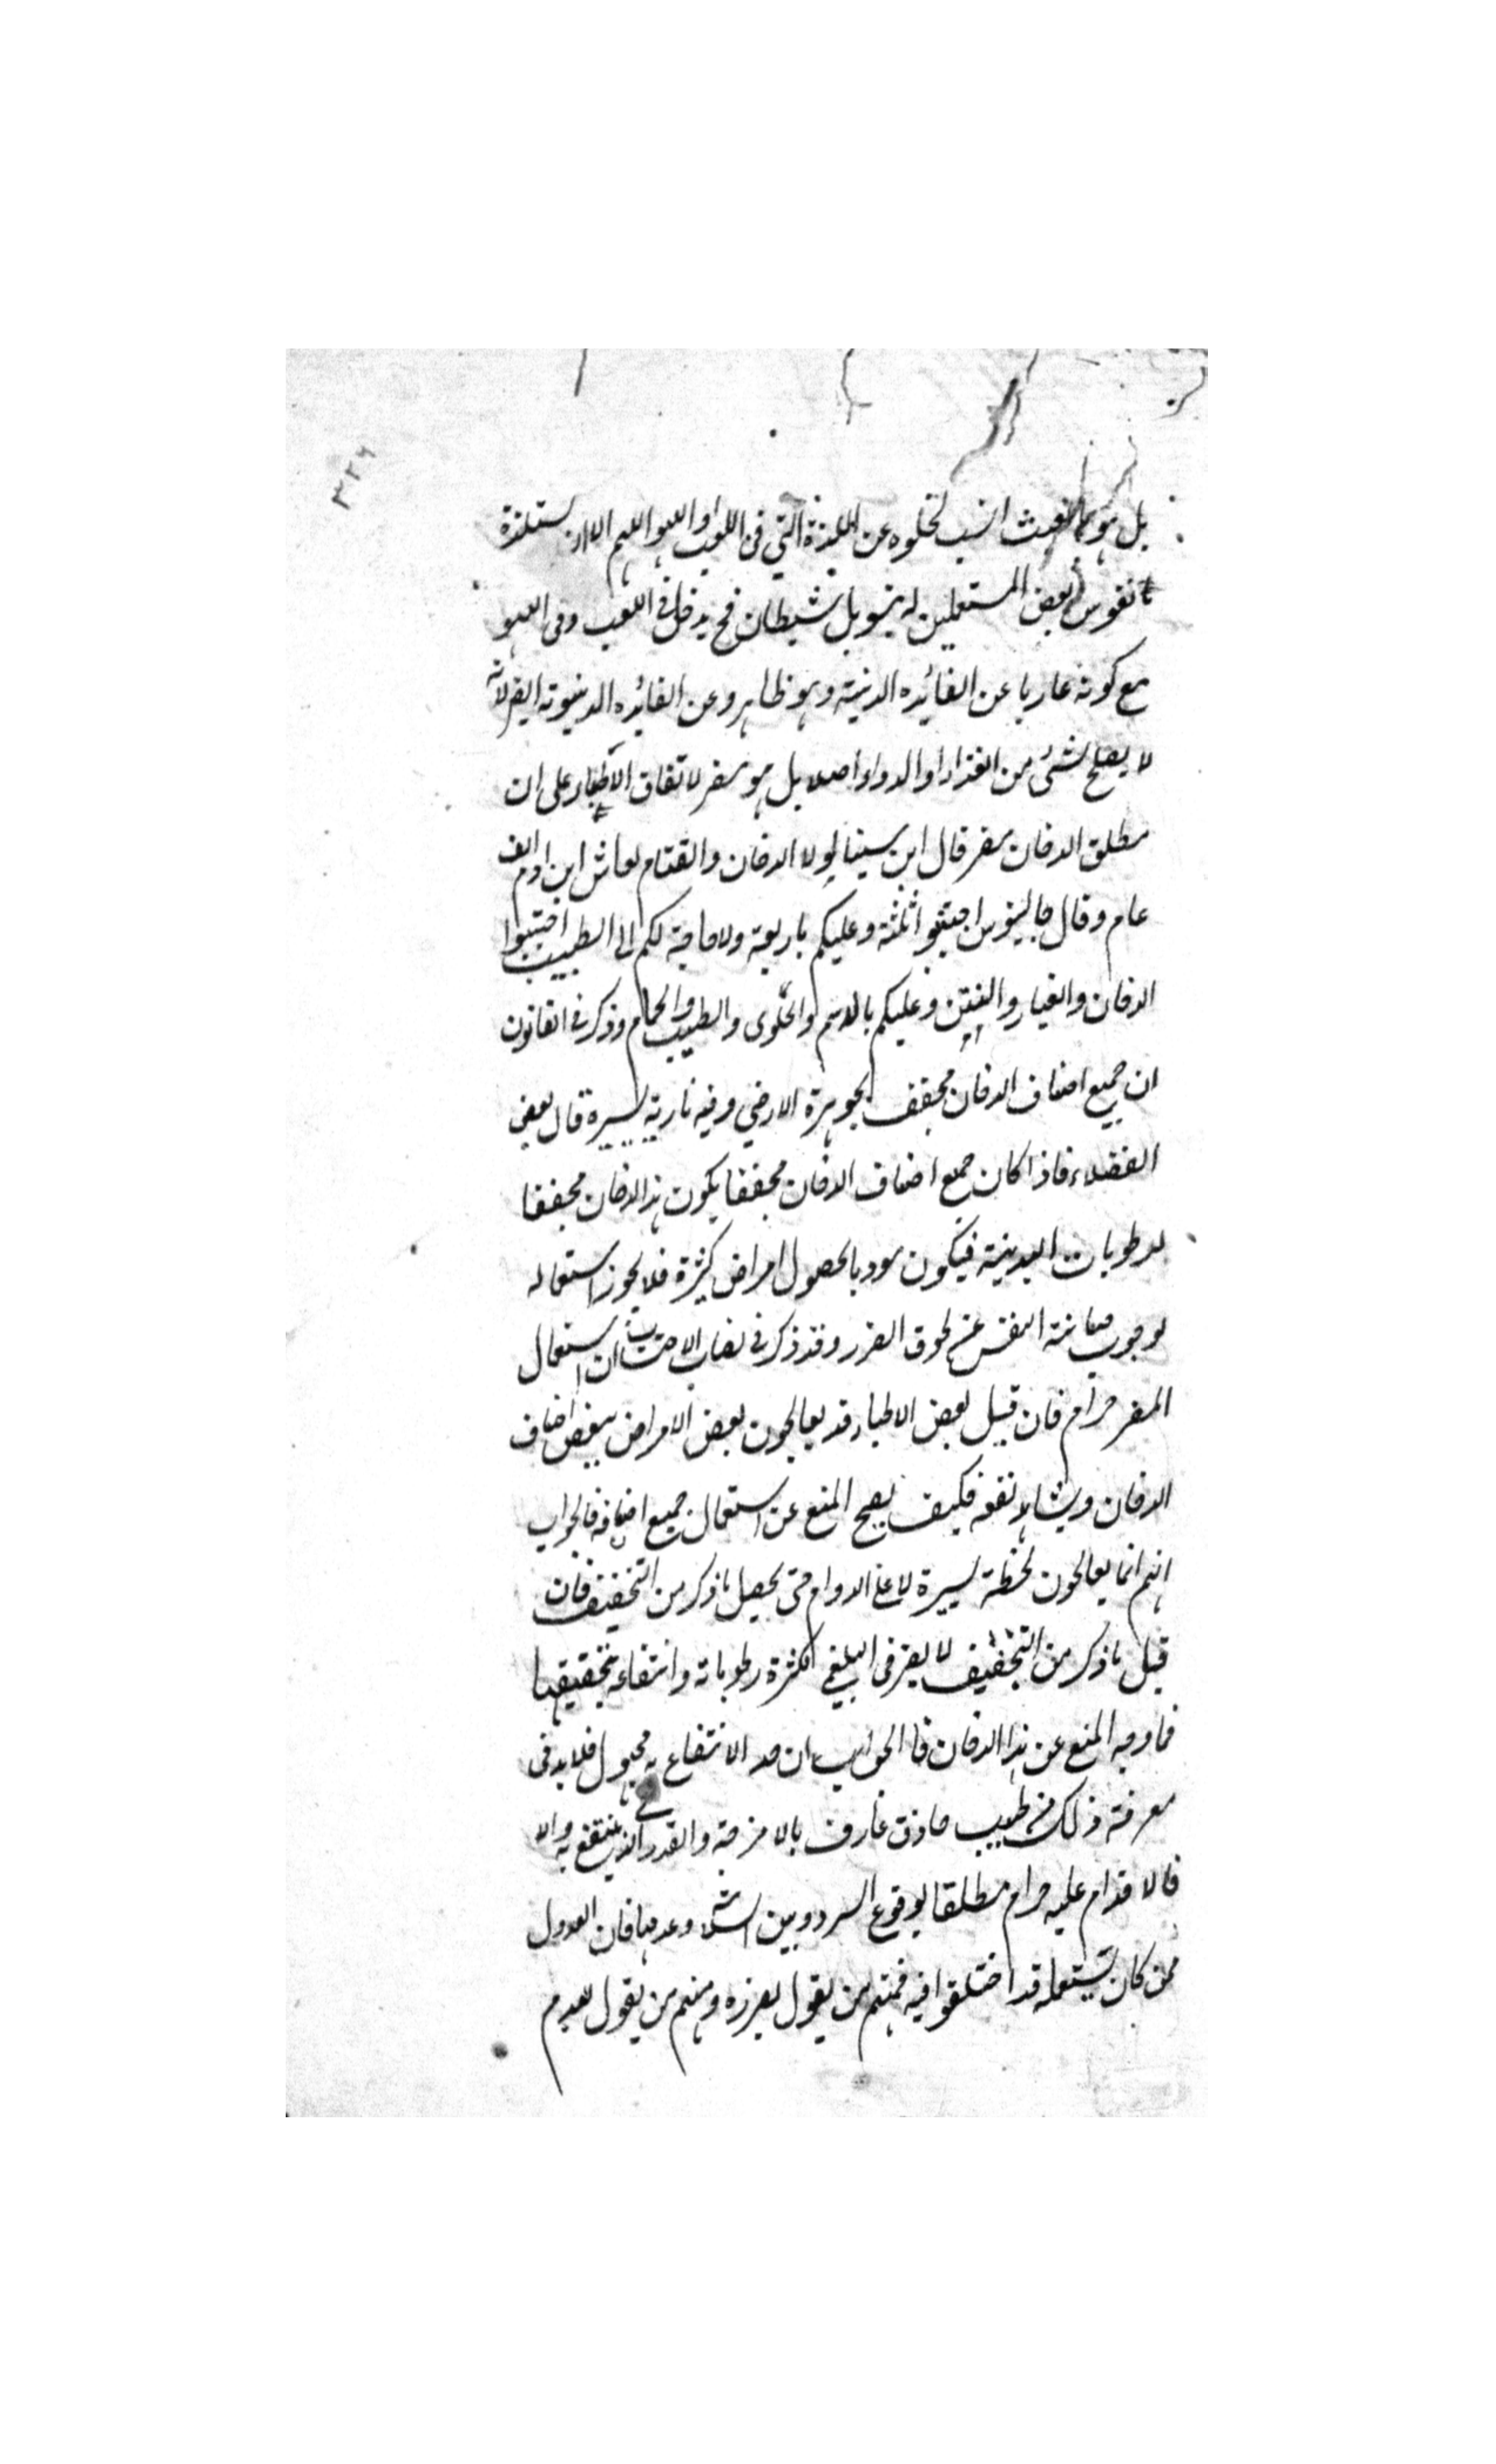 ٣٢٦
بل هو بالعبث انسب لخلوه عن اللذة التي في اللعب او اللهو اللهم الا ان يستلذه
نفوس بعض المستعملين له بتسويل شيطان فح يدخل في اللعب وفى اللهو
مع كونه عاريا عن الفائده الدنية وهو ظاهر وعن الفائده الدنيوته ايض لانه
لا يصلح لشئ من الغذاء او الدواء اصلا بل هو مضر لاتفاق الاطباء على ان
مطلق الدخان مضر قال ابن سينا لولا الدخان والقتام لعاش ابن ادم الف
عام وقال جالينوس اجتنبوا ثلثة وعليكم باربعة ولا حاجة لكم الى الطبيب اجتنبوا
الدخان والغبار والنتن وعليكم بالدسم والحلوى والطيب والحمام وذكر في القانون
ان جميع اصناف الدخان مجفف بجوهرة الارضي وفيه نارية يسيرة قال بعض
الفضلاء فاذا كان جميع اصناف الدخان مجففا يكون هذا الدخان مجففا
للرطوبات البدنية فيكون مودبا لحصول امراض كثيرة فلا يجوز استعماله
لوجوب صيانة النفس عن لحوق الضرر وقد ذكر في نصاب الاحتساب ان استعمال
المضر حرام فان قيل بعض الاطباء قد يعالجون بعض الامراض ببعض اصناف
الدخان ويشاهد نفعه فكيف يصح المنع عن استعمال جميع اصنافه فالجواب
انهم انما يعالجون لحظة يسيرة لا على الدوام حتى يحصل ما ذكر من التجفيف فان
قيل ما ذكر من التجفيف لا يضر فى البلغمي لكثرة رطوباته وانتفاعه بتجفيفها
فما وجه المنع عن هذا الدخان فالجواب ان حد الانتفاع به مجهول فلا بد فى
معرفة ذلك من طبيب حاذق عارف بالامزجة والقدر الذي ينتفع به والا
فالاقدام عليه حرام مطلقا لوقوع التردد وبين السلامة وعدمها فان العدول
ممن كان يستعمله قد اختلفوا فيه فمنهم من يقول بضرره ومنهم من يقول بعدم